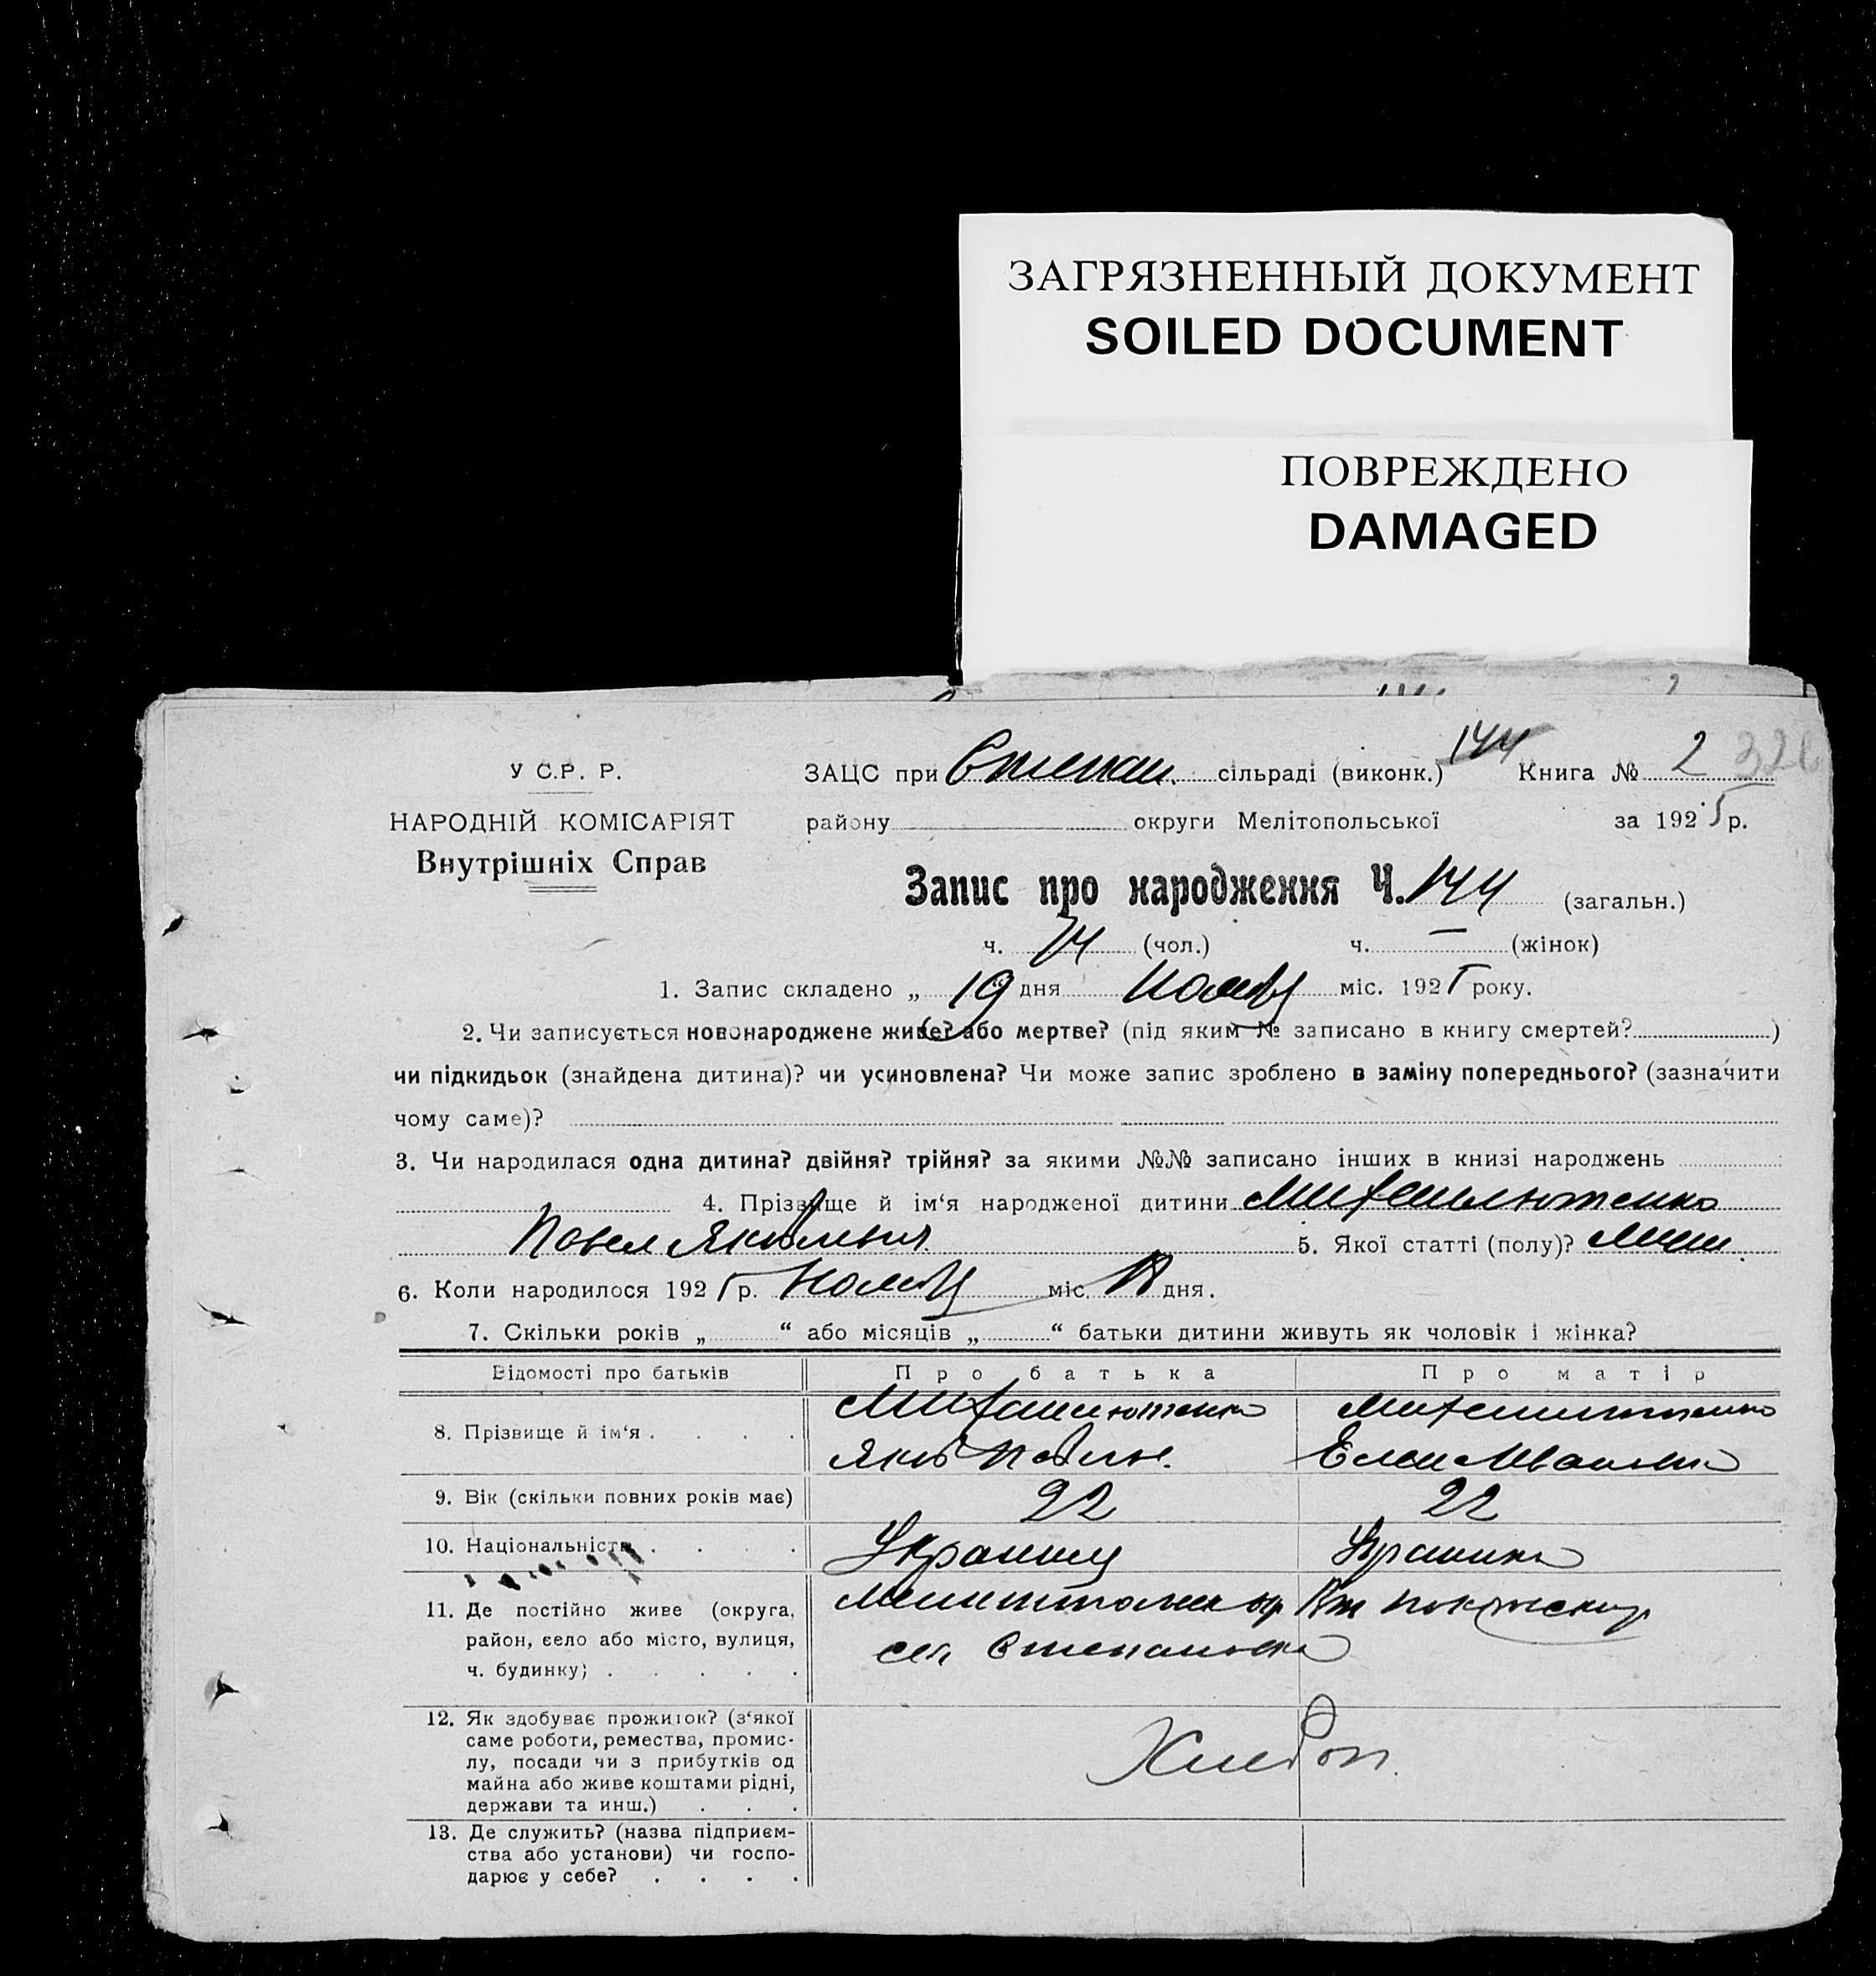 ЗАГРЯЗНЕННЫЙ ДОКУМЕНТ
SOILED DOCUMENT
ПОВРЕЖДЕНО
DAMAGED
144
У С.Р. Р.
ЗАЦС при Степан. сільраді (виконк.) Книга № 2
НАРОДНІЙ КОМІСАРІЯТ
району округи Мелітопольської за 1925 р.
Внутрішніх Справ
Запис про народження Ч. 144 (загальн.)
ч. 74 (чол.) ч. — (жінок)
1. Запис складено „ 19 дня міс. 1925 року.
2. Чи записується новонароджене живе? або мертве? (під яким № записано в книгу смертей? )
чи підкидьок (знайдена дитина)? чи усиновлена? Чи може запис зроблено в заміну попереднього? (зазначити
чому саме)?
3. Чи народилася одна дитина? двійня? трійня? за якими №№ записано інших в книзі народжень
4. Прізвище й ім‘я народженої дитини
Павел 5. Якої статті (полу)?
6. Коли народилося 1925 р. міс. дня.
7. Скільки років „ “ або місяців „ “ батьки дитини живуть як чоловік і жінка?
Відомості про батьків Про батька Про матір
8. Прізвище й ім‘я
Елен Ивановна
9. Вік (скільки повних років має) 22 22
10. Національність Украинец Украинка
11. Де постійно живе (округа,
район, село або місто, вулиця,
ч. будинку)
сел. Степановка
12. Як здобуває прожиток? (з‘якої
саме роботи, ремества, промис-
лу, посади чи з прибутків од
майна або живе коштами рідні,
держави та инш.)
Хлебоп.
13. Де служить? (назва підприєм-
ства або установи) чи госпо-
дарює у себе?